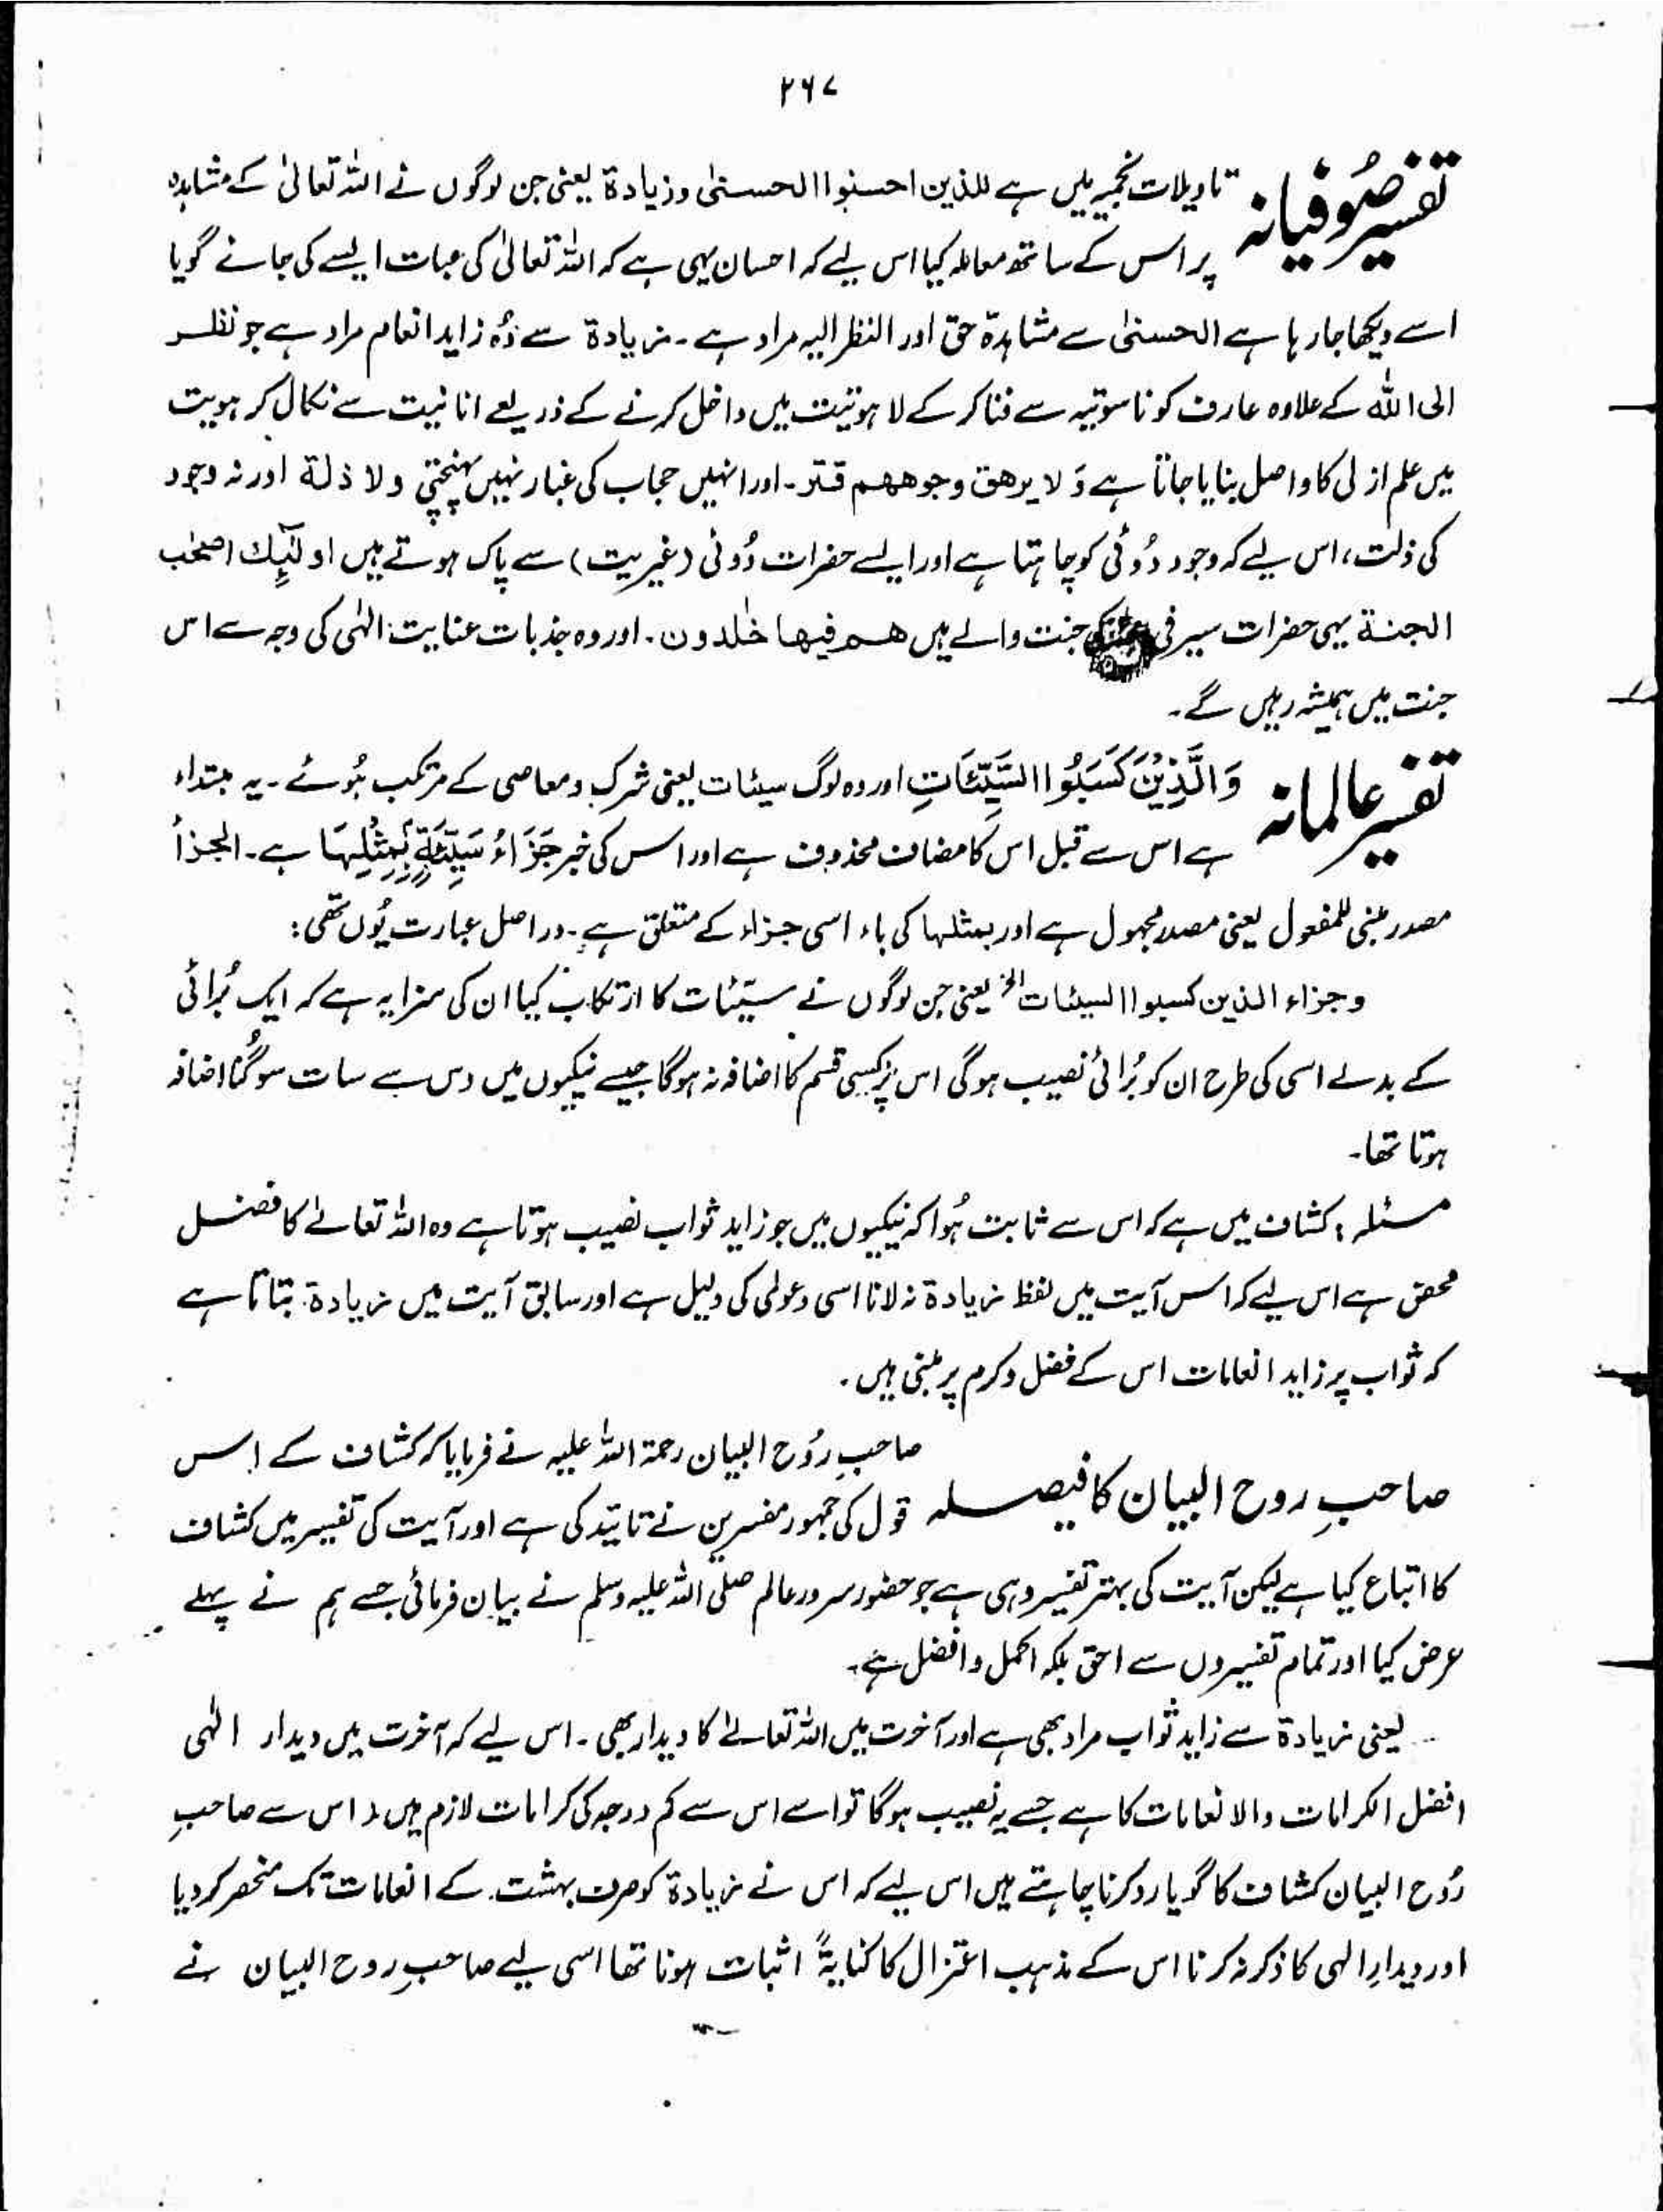 ۲۶۷
تفسیر صُوفیانہ تاویلات نجمیہ میں ہے للذین احسنوا الحسنیٰ وزیادة یعنی جن لوگوں نے اللہ تعالیٰ کے مشاہدہ
پر اس کے ساتھ معاملہ کیا اس لیے کہ احسان یہی ہے کہ اللہ تعالیٰ کی عبات ایسے کی جائے گویا
اسے دیکھا جا رہا ہے الحسنیٰ سے مشاہدۃ حق اور النظر الیہ مراد ہے۔ زیادة سے وُہ زاید انعام مراد ہے جو نظر
الی اللہ کے علاوہ عارف کو ناسوتیہ سے فنا کر کے لاہوتیت میں داخل کرنے کے ذریعے انانیت سے نکال کر ہویت
میں علم ازلی کا واصل بنایا جاتا ہے وَ لا یرهق وجوههم قتر۔ اور انہیں حجاب کی غبار نہیں پہنچتی ولا ذلة اور نہ وجود
کی ذلت، اس لیے کہ وجود دُوئی کو چاہتا ہے اور ایسے حضرات دُوئی (غیریت) سے پاک ہوتے ہیں اولٰٓئِك اصحٰب
الجنة یہی حضرات سیر فی جنت والے ہیں هم فیها خٰلدون۔ اور وہ جذبات عنایت الٰہی کی وجہ سے اس
جنت میں ہمیشہ رہیں گے۔
تفسیر عالمانہ وَالَّذِیْنَ كَسَبُوا السَّیِّئَاتِ اور وہ لوگ سیئات یعنی شرک و معاصی کے مرتکب ہُوئے۔ یہ مبتداء
ہے اس سے قبل اس کا مضاف محذوف ہے اور اس کی خبر جَزَآءُ سَیِّئَةٍۭ بِمِثْلِهَا ہے۔ الجزأ
مصدر مبنی للمفعول یعنی مصدر مجہول ہے اور بمثلها کی باء اسی جزاء کے متعلق ہے۔ دراصل عبارت یُوں تھی:
وجزاء الذین کسبوا السیئات الخ یعنی جن لوگوں نے سیّئات کا ارتکاب کیا ان کی سزا یہ ہے کہ ایک بُرائی
کے بدلے اسی کی طرح ان کو بُرائی نصیب ہوگی اس پر کسی قسم کا اضافہ نہ ہوگا جیسے نیکیوں میں دس سے سات سو گُنا اضافہ
ہوتا تھا۔
مسئلہ؛ کشاف میں ہے کہ اس سے ثابت ہُوا کہ نیکیوں میں جو زاید ثواب نصیب ہوتا ہے وہ اللہ تعالےٰ کا فضل
محض ہے اس لیے کہ اس آیت میں لفظ زیادة نہ لانا اسی دعوٰی کی دلیل ہے اور سابق آیت میں زیادة بتاتا ہے
کہ ثواب پر زاید انعامات اس کے فضل و کرم پر مبنی ہیں۔
صاحبِ روح البیان کا فیصلہ صاحبِ رُوح البیان رحمۃ اللہ علیہ نے فرمایا کہ کشاف کے اس
قول کی جمہور مفسرین نے تائید کی ہے اور آیت کی تفسیر میں کشاف
کا اتباع کیا ہے لیکن آیت کی بہتر تفسیر وہی ہے جو حضور سرور عالم صلی اللہ علیہ وسلم نے بیان فرمائی جسے ہم نے پہلے
عرض کیا اور تمام تفسیروں سے احق بلکہ اکمل و افضل ہے۔
یعنی زیادة سے زاید ثواب مراد بھی ہے اور آخرت میں اللہ تعالےٰ کا دیدار بھی۔ اس لیے کہ آخرت میں دیدار الٰہی
افضل الکرامات والانعامات کا ہے جسے یہ نصیب ہوگا تو اسے اس سے کم درجہ کی کرامات لازم ہیں۔ اس سے صاحبِ
رُوح البیان کشاف کا گویا رد کرنا چاہتے ہیں اس لیے کہ اس نے زیادة کو صرف بہشت کے انعامات تک منحصر کر دیا
اور دیدارِ الٰہی کا ذکر نہ کرنا اس کے مذہب اعتزال کا کنایۃً اثبات ہونا تھا اسی لیے صاحبِ روح البیان نے